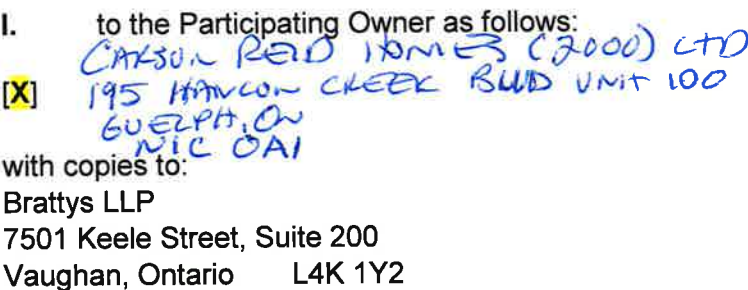 I. to the Participating Owner as follows:
CARSON REID HOMES (2000) LTD
[X] 195 HANLON CREEK BLVD UNIT 100
GUELPH, ON
N1C 0A1
with copies to:
Brattys LLP
7501 Keele Street, Suite 200
Vaughan, Ontario L4K 1Y2